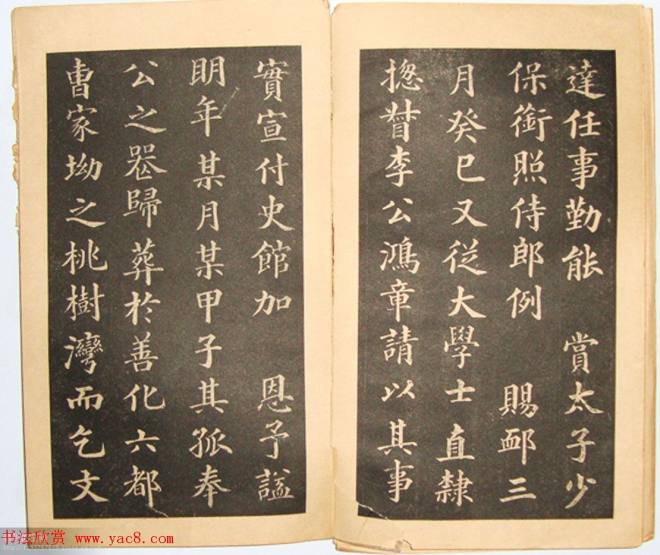 達任事勤能　賞太子少
保銜照侍郎例　賜卹三
月癸巳又從大學士直隸
揔督李公鴻章請以其事
實宣付史館加　恩予謚
明年某月某甲子其孤奉
公之器歸葬於善化六都
曹家坳之桃樹灣而乞文
书法欣赏 www.yac8.com